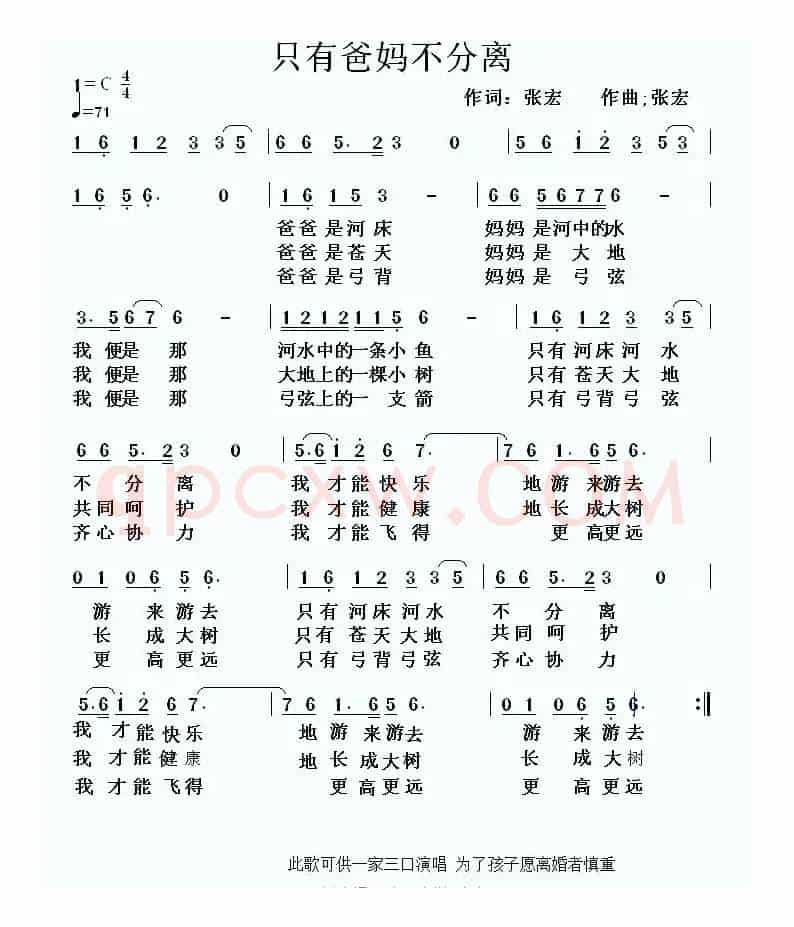 只有爸妈不分离
1=C 4/4
♩=71
作词：张宏 作曲;张宏
1 6 1 2 3 3 5 | 6 6 5. 2 3 0 | 5 6 1 2 3 5 3 |
1 6 5 6. 0 | 1 6 1 5 3 - | 6 6 5 6 7 7 6 - |
爸爸是河床 妈妈是河中的水
爸爸是苍天 妈妈是大地
爸爸是弓背 妈妈是弓弦
3. 5 6 7 6 - | 1 2 1 2 1 1 5 6 - | 1 6 1 2 3 3 5 |
我便是那 河水中的一条小鱼 只有河床河水
我便是那 大地上的一棵小树 只有苍天大地
我便是那 弓弦上的一支箭 只有弓背弓弦
6 6 5. 2 3 0 | 5. 6 1 2 6 7. | 7 6 1. 6 5 6. |
不分离 我才能快乐 地游来游去
共同呵护 我才能健康 地长成大树
齐心协力 我才能飞得 更高更远
qpcxw.COM
0 1 0 6 5 6. | 1 6 1 2 3 3 5 | 6 6 5. 2 3 0 |
游来游去 只有河床河水 不分离
长成大树 只有苍天大地 共同呵护
更高更远 只有弓背弓弦 齐心协力
5. 6 1 2 6 7. | 7 6 1. 6 5 6. | 0 1 0 6 5 6. :||
我才能快乐 地游来游去 游来游去
我才能健康 地长成大树 长成大树
我才能飞得 更高更远 更高更远
此歌可供一家三口演唱 为了孩子愿离婚者慎重